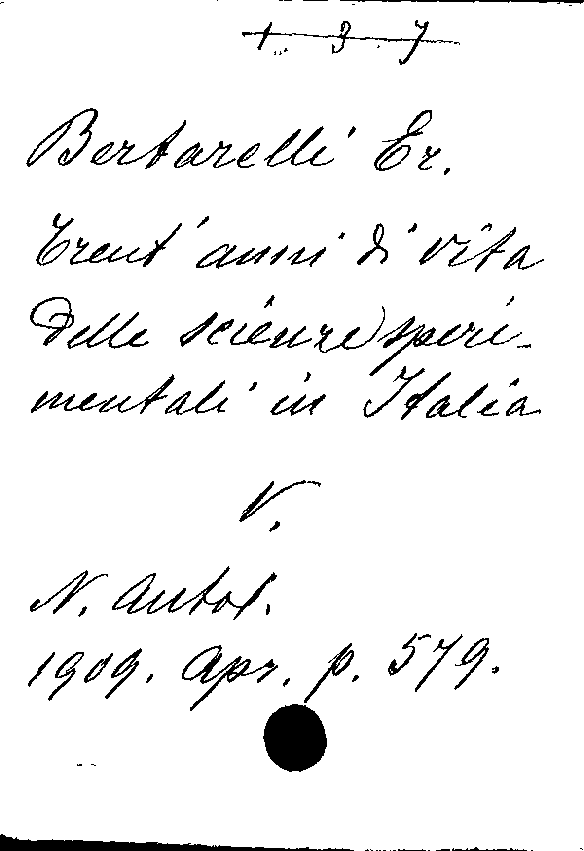 1. 3. 7
Bertarelli Er.
Trent'anni di vita
delle scienze speri-
mentali in Italia
V.
N. Antol.
1909. Apr. p. 579.